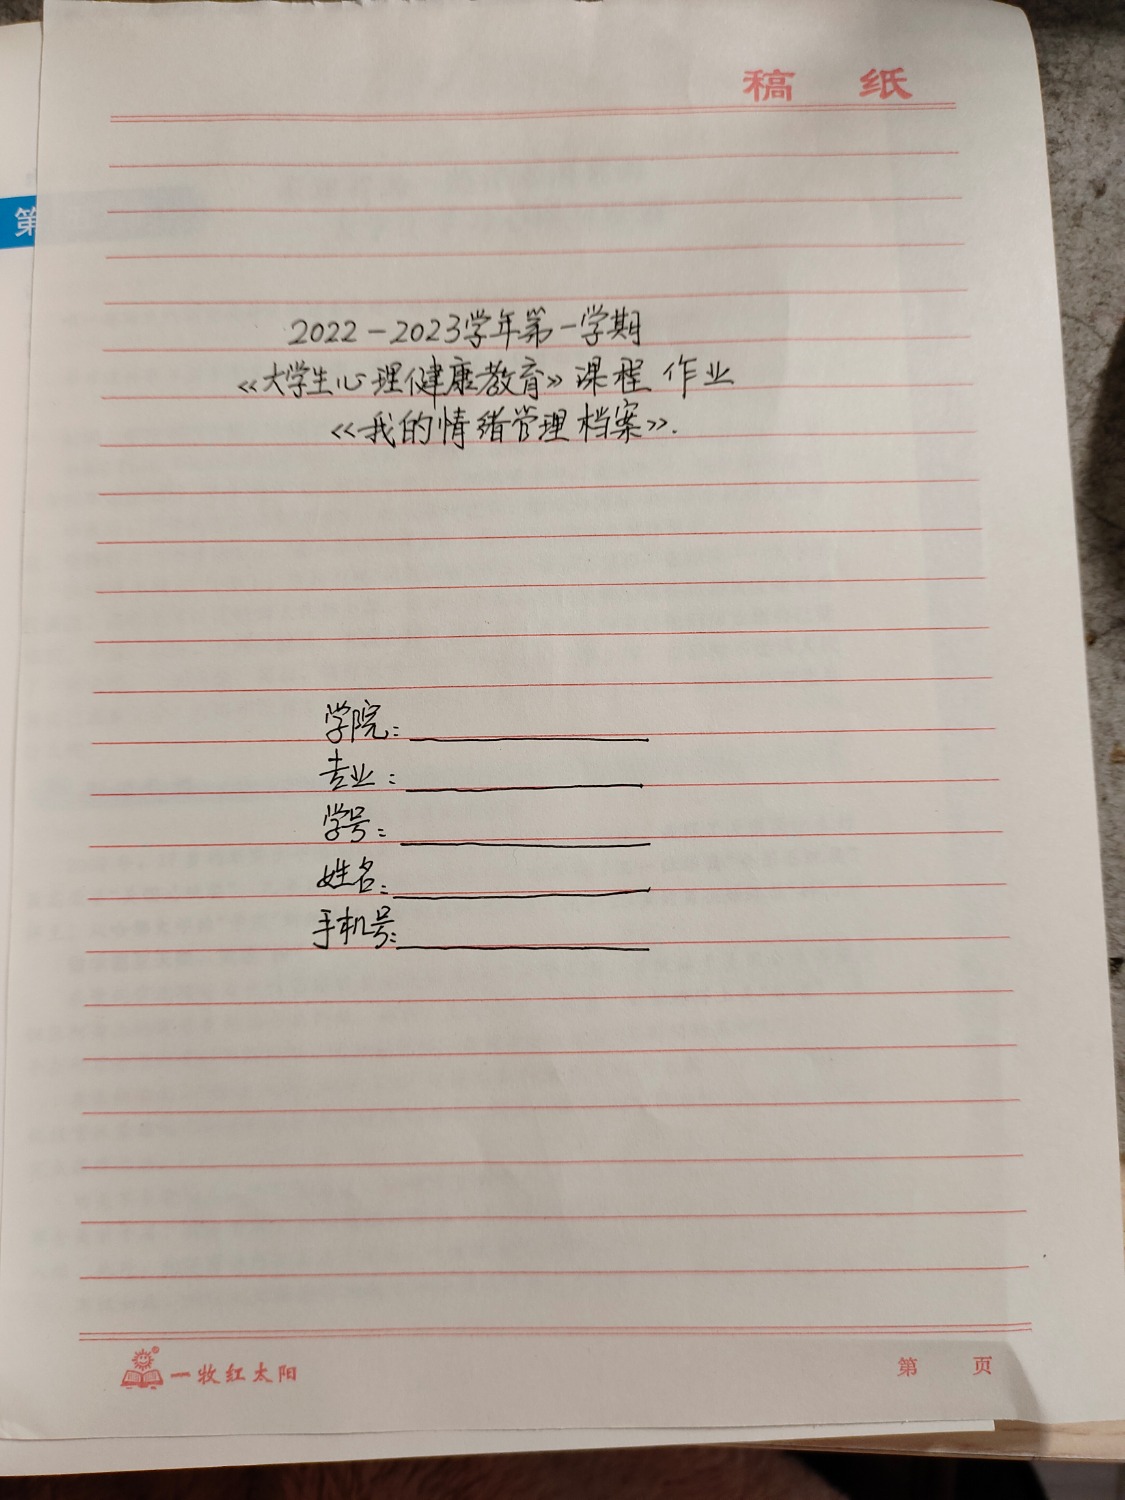 稿 纸
第
2022-2023学年第一学期
《大学生心理健康教育》课程 作业
《我的情绪管理档案》.
学院:
专业:
学号:
姓名:
手机号:
一牧红太阳
第 页